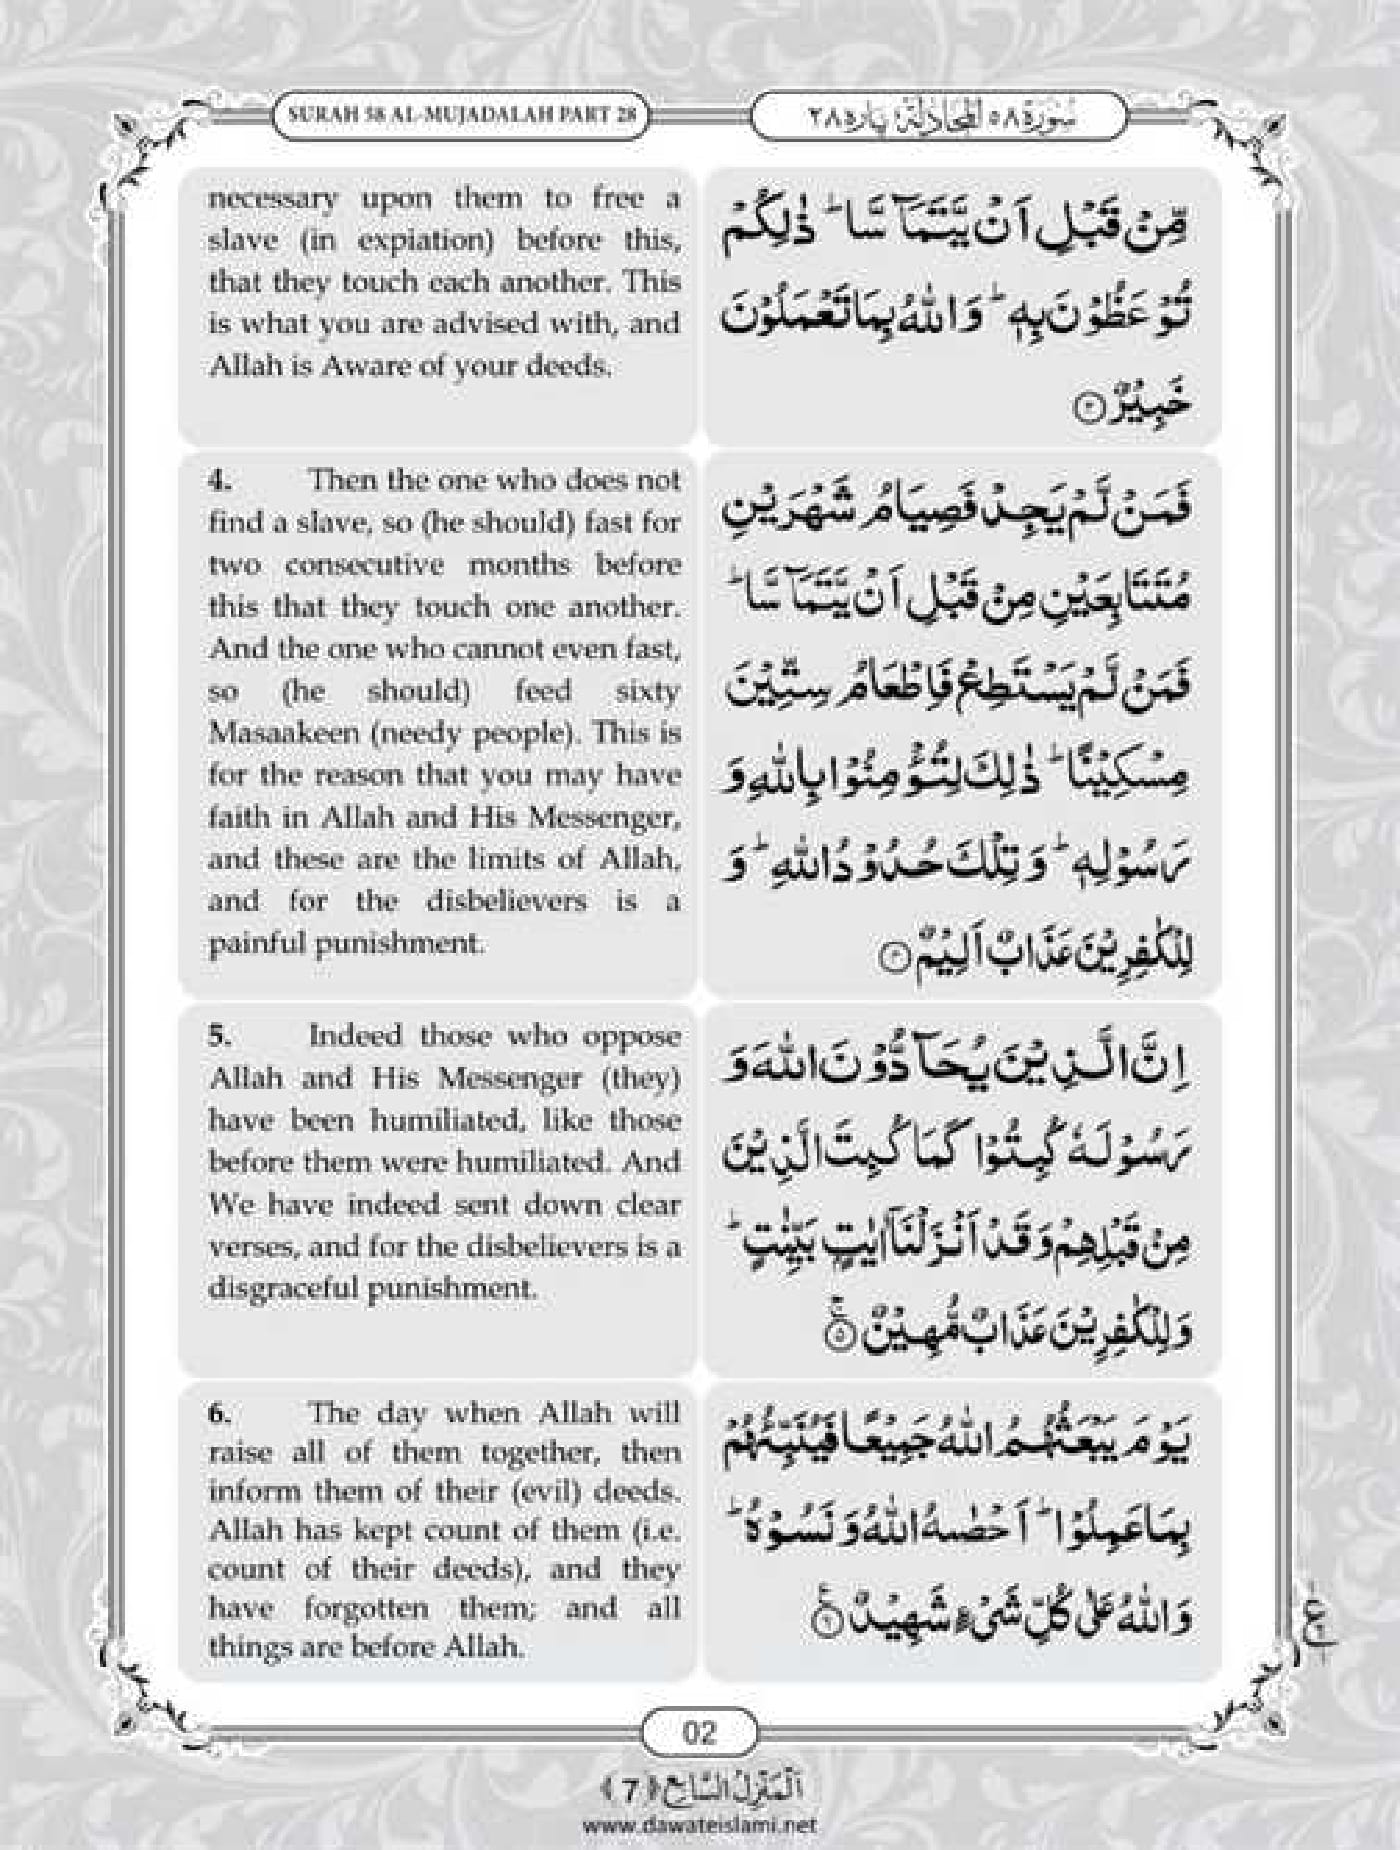 SURAH 58 AL-MUJADALAH PART 28
سُورَة ٥٨ الْمُجَادَلَة: پاره ٢٨
necessary upon them to free a
slave (in expiation) before this,
that they touch each another. This
is what you are advised with, and
Allah is Aware of your deeds.
مِّنْ قَبْلِ اَنْ يَّتَمَآسَّا ؕ ذٰلِكُمْ
تُوْعَظُوْنَ بِهٖ ؕ وَاللّٰهُ بِمَا تَعْمَلُوْنَ
خَبِيْرٌ ۝۳
4. Then the one who does not
find a slave, so (he should) fast for
two consecutive months before
this that they touch one another.
And the one who cannot even fast,
so (he should) feed sixty
Masaakeen (needy people). This is
for the reason that you may have
faith in Allah and His Messenger,
and these are the limits of Allah,
and for the disbelievers is a
painful punishment.
فَمَنْ لَّمْ يَجِدْ فَصِيَامُ شَهْرَيْنِ
مُتَتَابِعَيْنِ مِنْ قَبْلِ اَنْ يَّتَمَآسَّا ؕ
فَمَنْ لَّمْ يَسْتَطِعْ فَاِطْعَامُ سِتِّيْنَ
مِسْكِيْنًا ؕ ذٰلِكَ لِتُؤْمِنُوْا بِاللّٰهِ وَ
رَسُوْلِهٖ ؕ وَتِلْكَ حُدُوْدُ اللّٰهِ ؕ وَ
لِلْكٰفِرِيْنَ عَذَابٌ اَلِيْمٌ ۝۴
5. Indeed those who oppose
Allah and His Messenger (they)
have been humiliated, like those
before them were humiliated. And
We have indeed sent down clear
verses, and for the disbelievers is a
disgraceful punishment.
اِنَّ الَّذِيْنَ يُحَآدُّوْنَ اللّٰهَ وَ
رَسُوْلَهٗ كُبِتُوْا كَمَا كُبِتَ الَّذِيْنَ
مِنْ قَبْلِهِمْ وَقَدْ اَنْزَلْنَاۤ اٰيٰتٍۭ بَيِّنٰتٍ ؕ
وَلِلْكٰفِرِيْنَ عَذَابٌ مُّهِيْنٌ ۝۵ۚ
6. The day when Allah will
raise all of them together, then
inform them of their (evil) deeds.
Allah has kept count of them (i.e.
count of their deeds), and they
have forgotten them; and all
things are before Allah.
يَوْمَ يَبْعَثُهُمُ اللّٰهُ جَمِيْعًا فَيُنَبِّئُهُمْ
بِمَا عَمِلُوْا ؕ اَحْصٰىهُ اللّٰهُ وَنَسُوْهُ ؕ
وَاللّٰهُ عَلٰى كُلِّ شَيْءٍ شَهِيْدٌ ۝۶
02
اَلْمَنْزِلُ السَّابِع ﴿7﴾
www.dawateislami.net